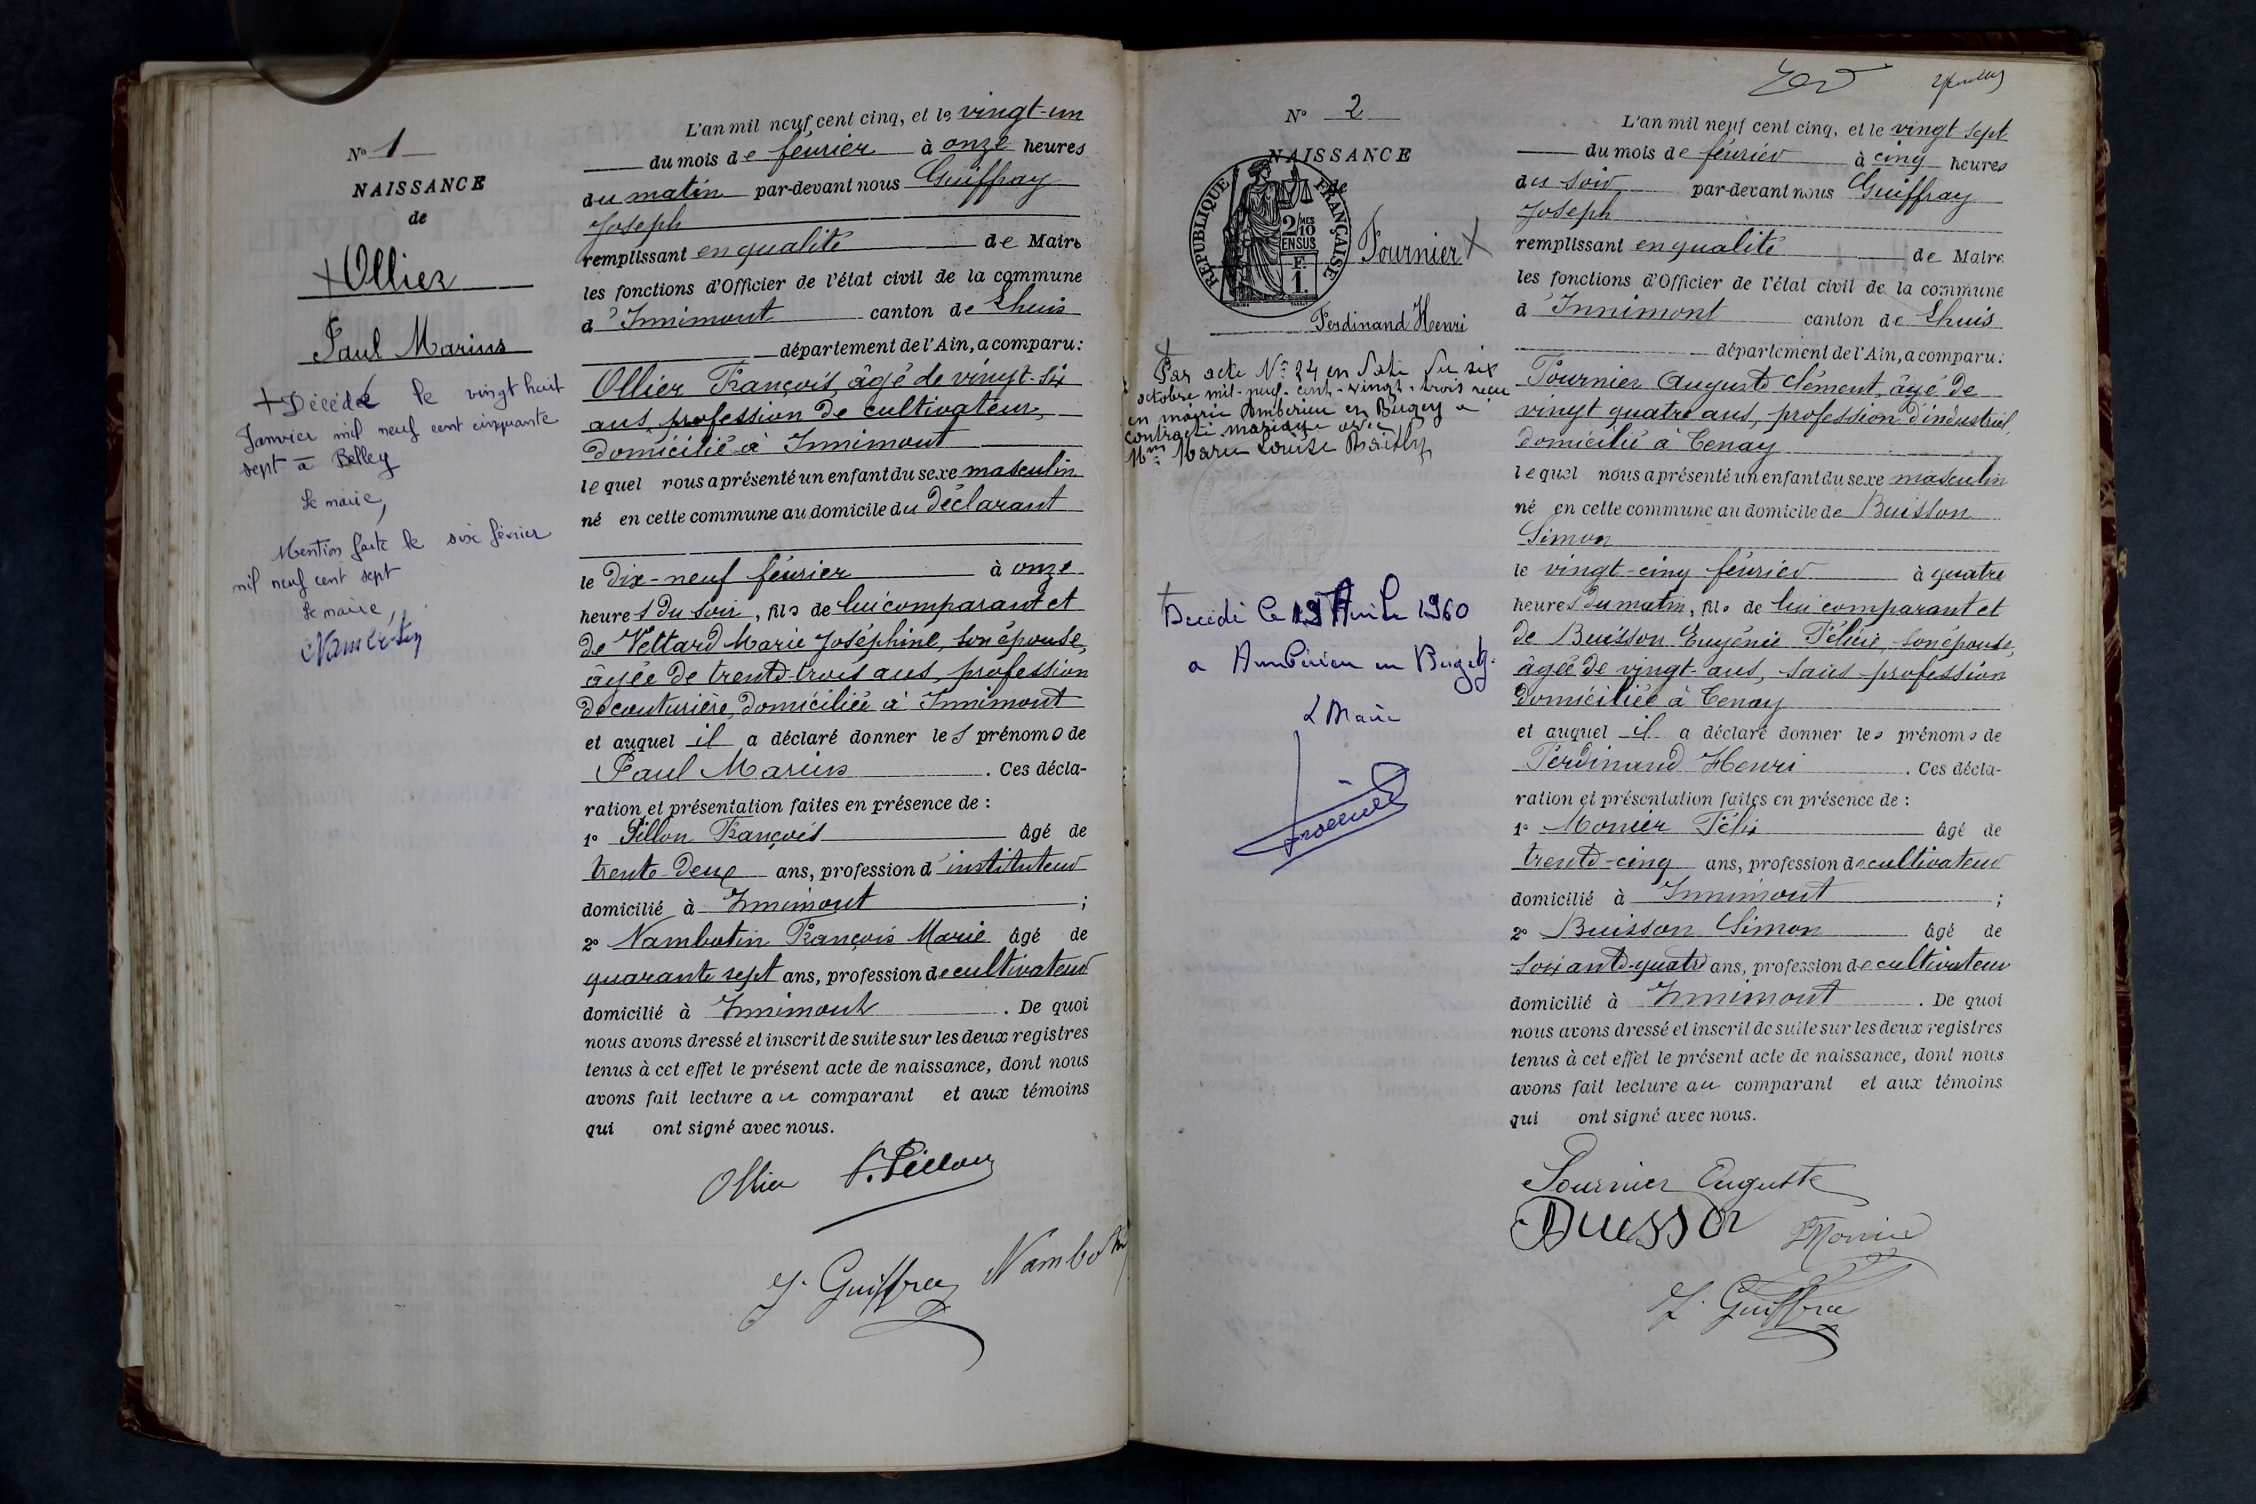 N° 1
NAISSANCE
de
+ Ollier
Paul Marius
+ Décédé le vingt huit
Janvier mil neuf cent cinquante
sept à Belley
Le maire,
Mention faite le six février
mil neuf cent sept
Le maire,
L'an mil neuf cent cinq, et le vingt-un
du mois de février à onze heures
du matin par-devant nous Guiffray
Joseph
remplissant en qualité de Maire
les fonctions d'Officier de l'état civil de la commune
d'Innimont canton de Lhuis
département de l'Ain, a comparu:
Ollier François, âgé de vingt-six
ans, profession de cultivateur,
domicilié à Innimont
lequel nous a présenté un enfant du sexe masculin
né en cette commune au domicile du déclarant
le dix-neuf février à onze
heures du soir, fils de lui comparant et
de Vettard Marie Joséphine, son épouse,
âgée de trente-trois ans, profession
de couturière, domiciliée à Innimont
et auquel il a déclaré donner les prénoms de
Paul Marius. Ces décla-
ration et présentation faites en présence de :
1° Pillon François âgé de
trente-deux ans, profession d'instituteur
domicilié à Innimont ;
2° Nambotin François Marie âgé de
quarante sept ans, profession de cultivateur
domicilié à Innimont. De quoi
nous avons dressé et inscrit de suite sur les deux registres
tenus à cet effet le présent acte de naissance, dont nous
avons fait lecture au comparant et aux témoins
qui ont signé avec nous.
Ollier F. Pillon
J. Guiffray Nambotin
N° 2
NAISSANCE
de
RÉPUBLIQUE FRANÇAISE
2/10 MES
EN SUS
F.
1.
Fournier +
Ferdinand Henri
+ Par acte N° 24 en date du six
octobre mil-neuf-cent-vingt-trois reçu
en mairie Ambérieu en Bugey a
contracté mariage avec
Marie Louise
+ Décédé le 19 Avril 1960
a Ambérieu en Bugey.
L Maire
L'an mil neuf cent cinq, et le vingt sept
du mois de février à cinq heures
du soir par-devant nous Guiffray
Joseph
remplissant en qualité de Maire
les fonctions d'Officier de l'état civil de la commune
d'Innimont canton de Lhuis
département de l'Ain, a comparu:
Fournier Auguste Clément, âgé de
vingt quatre ans, profession d'industriel,
domicilié à Tenay
lequel nous a présenté un enfant du sexe masculin
né en cette commune au domicile de Buisson
Simon
le vingt-cinq février à quatre
heures du matin, fils de lui comparant et
de Buisson Eugénie Félicie, son épouse,
âgée de vingt ans, sans profession
domiciliée à Tenay
et auquel il a déclaré donner les prénoms de
Ferdinand Henri. Ces décla-
ration et présentation faites en présence de :
1° Monier Félix âgé de
trente-cinq ans, profession de cultivateur
domicilié à Innimont ;
2° Buisson Simon âgé de
soixante-quatre ans, profession de cultivateur
domicilié à Innimont. De quoi
nous avons dressé et inscrit de suite sur les deux registres
tenus à cet effet le présent acte de naissance, dont nous
avons fait lecture au comparant et aux témoins
qui ont signé avec nous.
Fournier Auguste
Buisson Monier
J. Guiffray